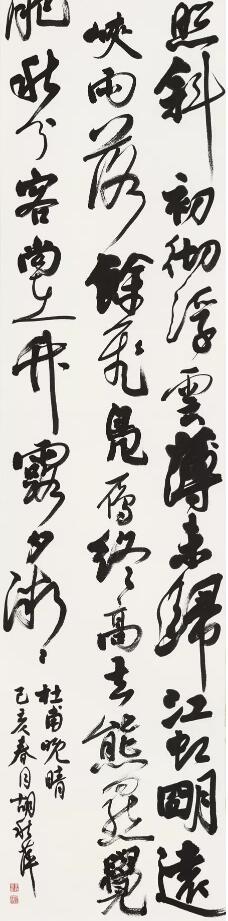 照斜初彻浮雲薄未歸江虹明遠
峽雨落餘飛鳧雁終高去熊羆覺
肥秋分客尚在竹露夕微〻
杜甫晚晴
己亥春月胡秋萍